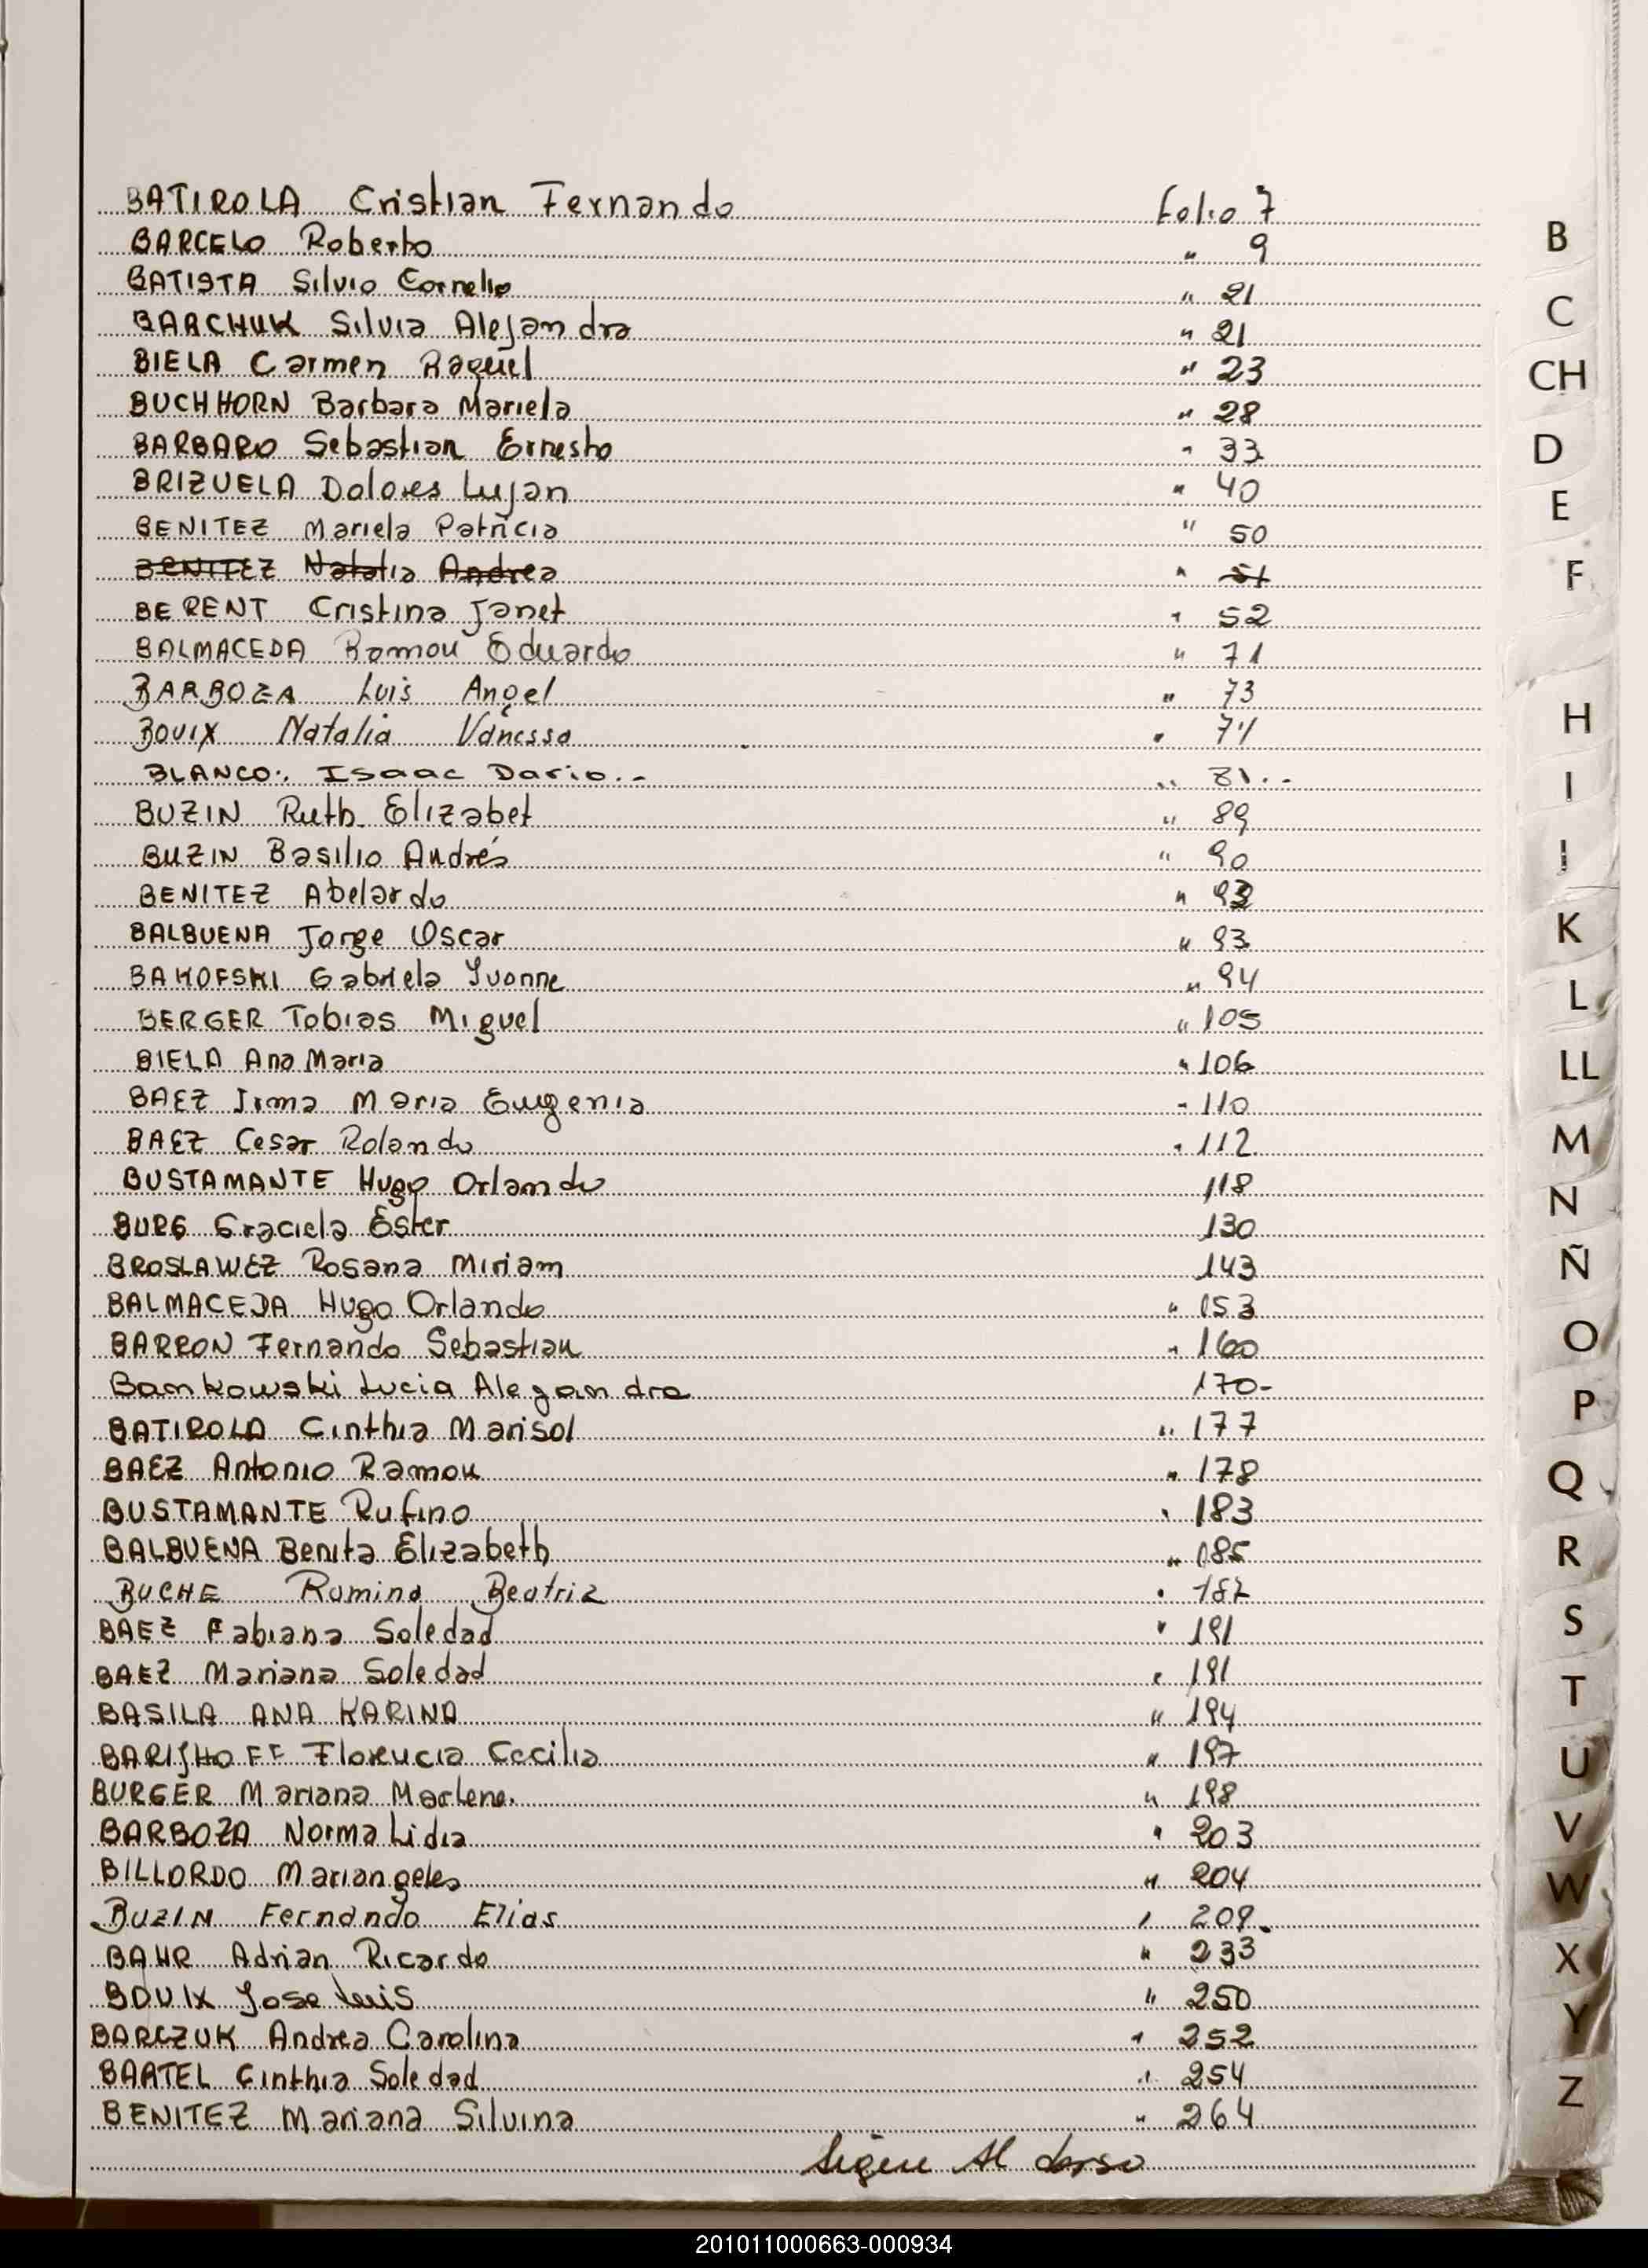 BATIROLA Cristian Fernando Folio 7
BARCELO Roberto " 9
BATISTA Silvio Cornelio " 21
BARCHUK Silvia Alejandra " 21
BIELA Carmen Raquel " 23
BUCHHORN Barbara Mariela " 28
BARBARO Sebastian Ernesto " 33
BRIZUELA Dolores Lujan " 40
BENITEZ Mariela Patricia " 50
BENITEZ Natalia Andrea " 51
BERENT Cristina Janet " 52
BALMACEDA Ramon Eduardo " 71
BARBOZA Luis Angel " 73
BOUIX Natalia Vanessa "
BLANCO:. Isaac Dario.- " 81.-
BUZIN Ruth Elizabet " 89
BUZIN Basilio Andrés " 90
BENITEZ Abelardo "
BALBUENA Jorge Oscar " 93
BAKOFSKI Gabriela Ivonne " 94
BERGER Tobias Miguel " 105
BIELA Ana Maria " 106
BAEZ Irma Maria Eugenia " 110
BAEZ Cesar Rolando " 112
BUSTAMANTE Hugo Orlando 118
BURG Graciela Ester 130
BROSLAWEZ Rosana Miriam 143
BALMACEDA Hugo Orlando " 153
BARRON Fernando Sebastian " 160
Bankowski Lucia Alejandra 170-
BATIROLA Cinthia Marisol " 177
BAEZ Antonio Ramon " 178
BUSTAMANTE Rufino " 183
BALBUENA Benita Elizabeth " 185
BUCHE Romina Beatriz " 187
BAEZ Fabiana Soledad " 191
BAEZ Mariana Soledad " 191
BASILA ANA KARINA " 194
BARIJHOFF Florencia Cecilia " 197
BURGER Mariana Marlene. " 198
BARBOZA Norma Lidia " 203
BILLORDO Mariangeles " 204
BUZIN Fernando Elias " 209.
BAHR Adrian Ricardo " 233
BOUIX Jose Luis " 250
BARCZUK Andrea Carolina " 252
BAATEL Cinthia Soledad " 254
BENITEZ Mariana Silvina " 264
Sigue Al dorso
B
C
CH
D
E
F
H
I
J
K
L
LL
M
N
Ñ
O
P
Q
R
S
T
U
V
W
X
Y
Z
201011000663-000934